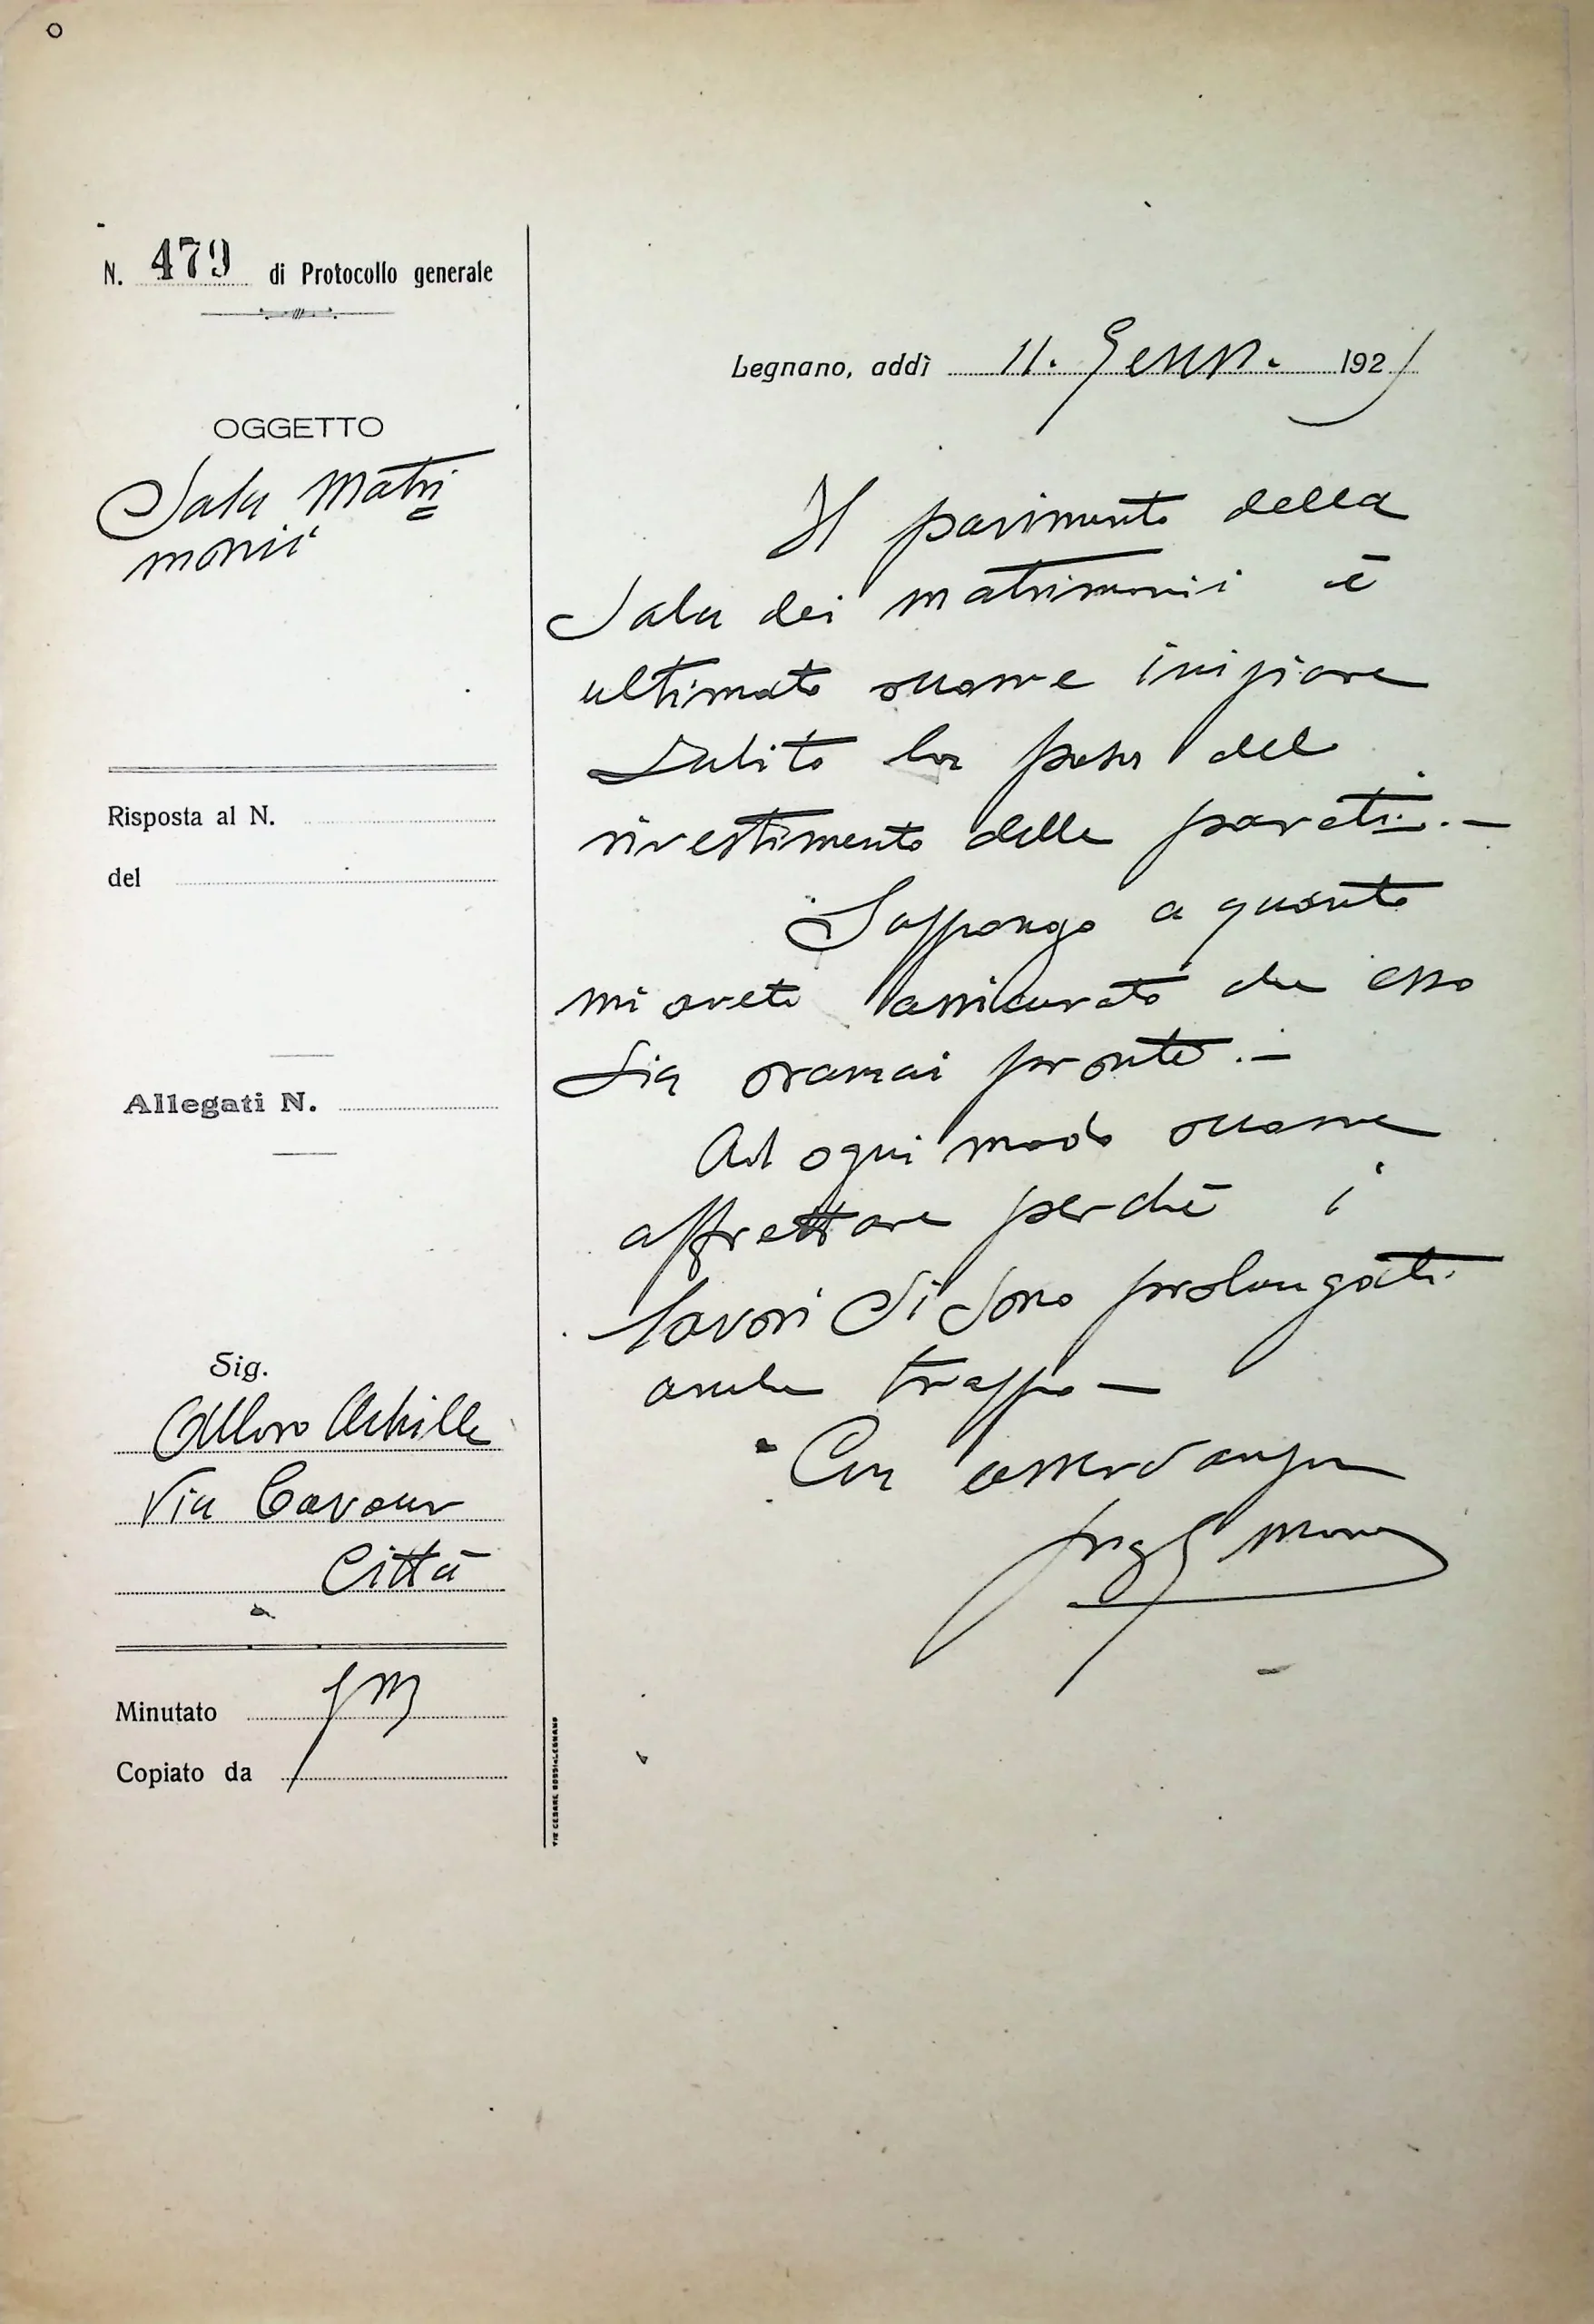 N. 479 di Protocollo generale
OGGETTO
Sala Matri=
monii
Risposta al N.
del
Allegati N.
Sig.
Alloro Achille
Via Cavour
Città
Minutato
Copiato da
TIP. CESARE ROSSI-LEGNANO
Legnano, addì 11. Genn. 192
Il pavimento della
Sala dei matrimonii è
ultimato occorre iniziare
subito la posa del
rivestimento delle pareti. -
Suppongo a quanto
mi avete assicurato che esso
sia oramai pronto. -
Ad ogni modo occorre
affrettare perchè i
lavori si sono prolungati
anche troppo -
Con osservanza
Ing